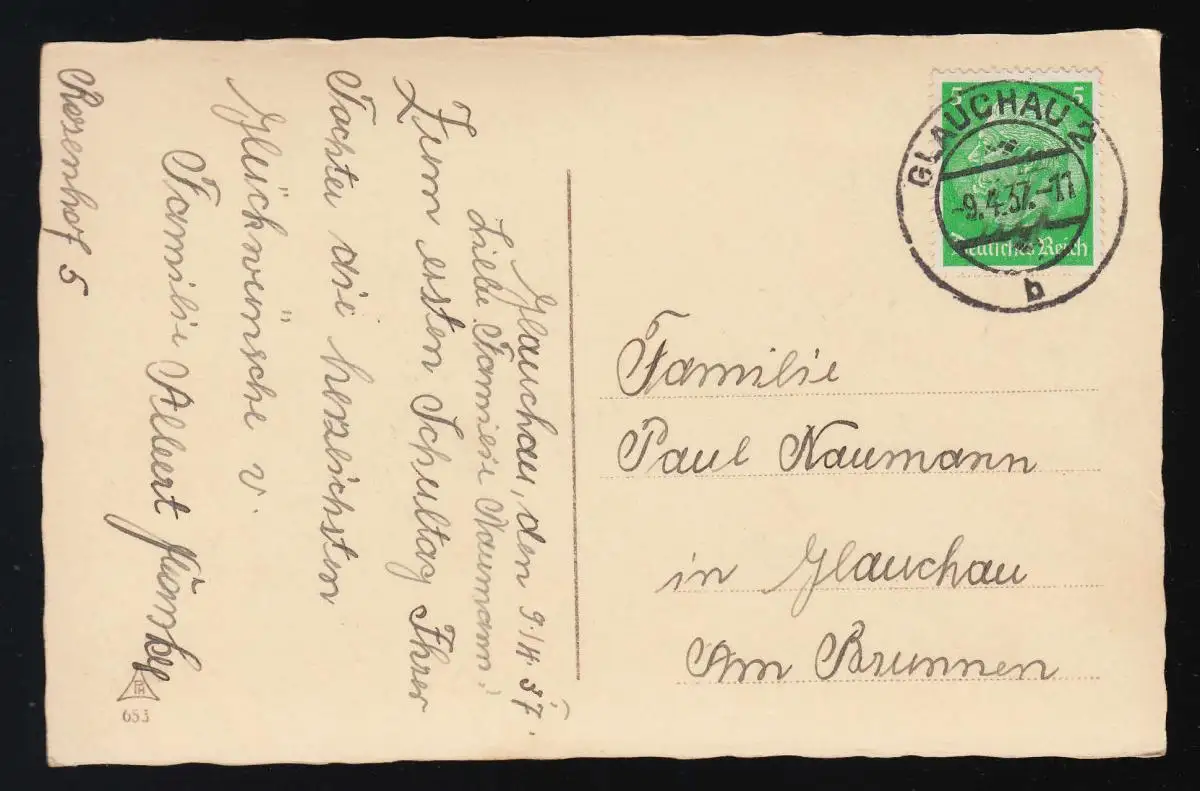 Glauchau, den 9./4. 37.
Liebe Familie Naumann!
Zum ersten Schultag Ihrer
Tochter die herzlichsten
Glückwünsche v.
Familie Albert
Rosenhof 5
653
5 5
Deutsches Reich
GLAUCHAU 2
-9.4.37.-11
b
Familie
Paul Naumann
in Glauchau
Am Brunnen